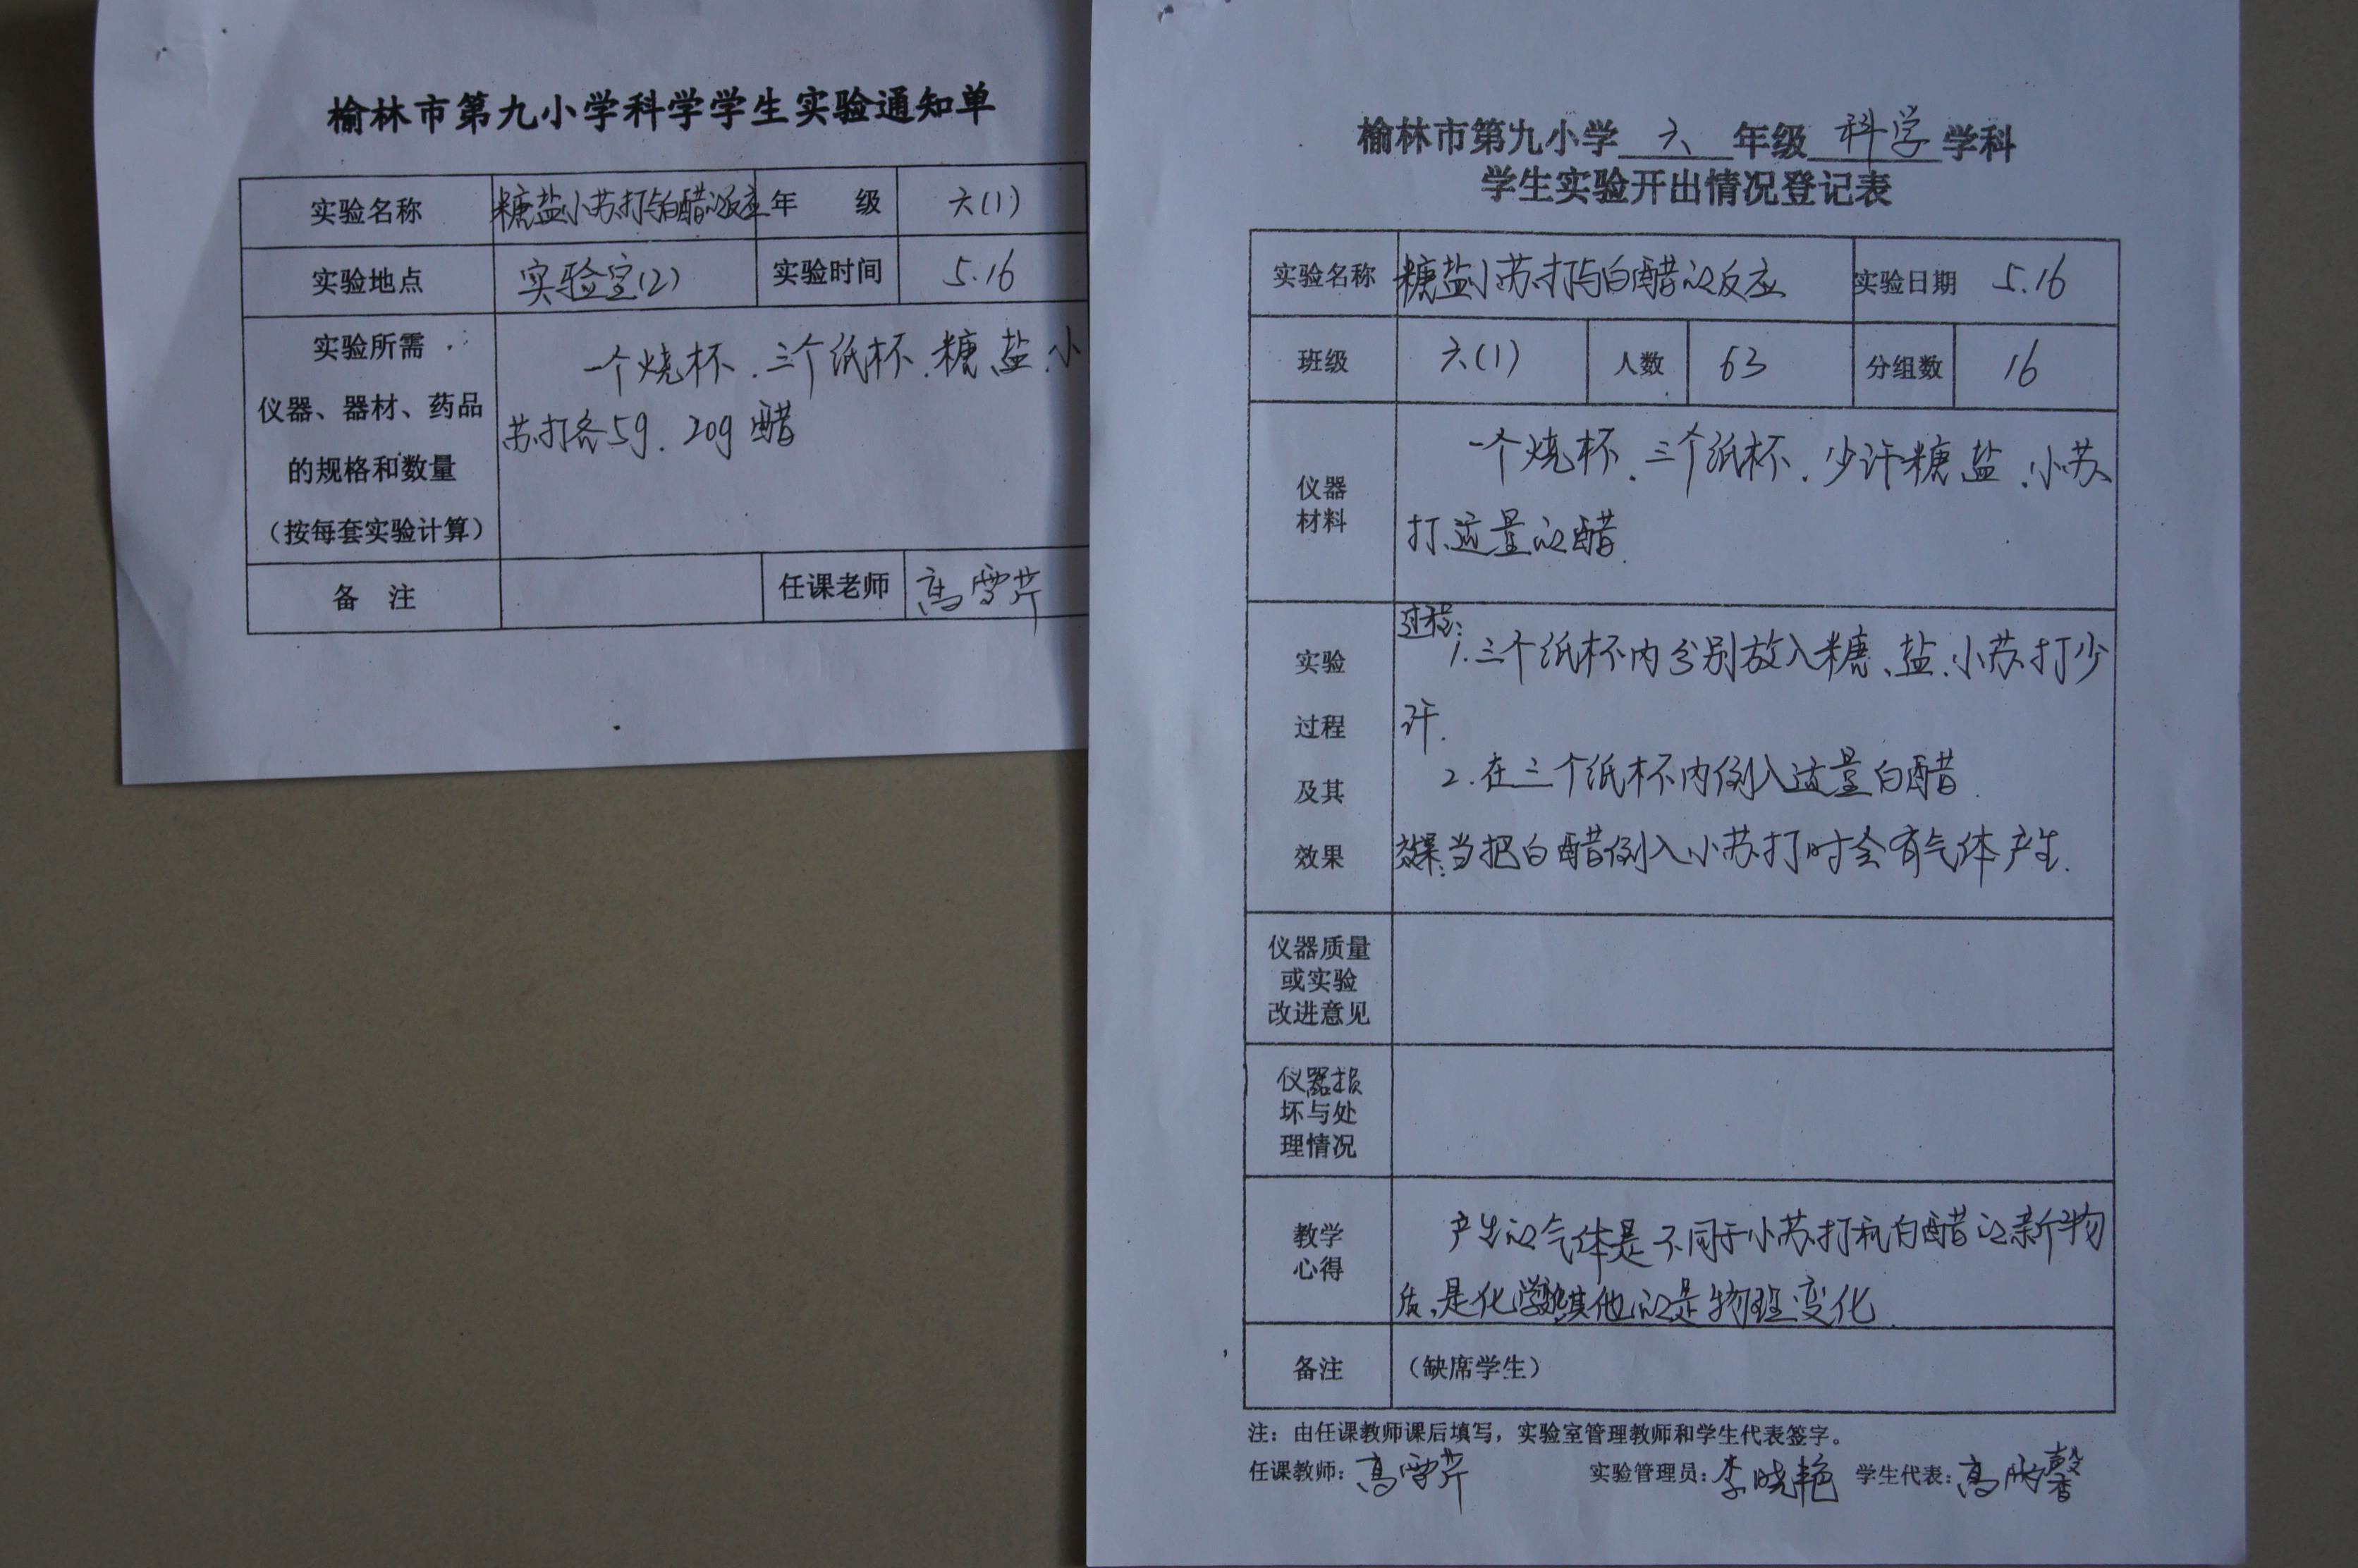 榆林市第九小学科学学生实验通知单
实验名称 糖盐小苏打与白醋的反应 年 级 六(1)
实验地点 实验室(2) 实验时间 5.16
实验所需
仪器、器材、药品
的规格和数量
（按每套实验计算）
一个烧杯.三个纸杯.糖、盐、小
苏打各5g.20g醋
备 注 任课老师 高雪芹
榆林市第九小学 六 年级 科学 学科
学生实验开出情况登记表
实验名称 糖盐小苏打与白醋的反应 实验日期 5.16
班级 六(1) 人数 63 分组数 16
仪器
材料
一个烧杯.三个纸杯.少许糖盐.小苏
打、适量的醋.
实验
过程
及其
效果
过程:
1.三个纸杯内分别放入糖、盐、小苏打少
许.
2.在三个纸杯内倒入适量白醋.
效果:当把白醋倒入小苏打时会有气体产生.
仪器质量
或实验
改进意见
仪器损
坏与处
理情况
教学
心得
产生的气体是不同于小苏打和白醋的新物
质,是化学 其他的是物理变化.
备注 （缺席学生）
注：由任课教师课后填写，实验室管理教师和学生代表签字。
任课教师：高雪芹 实验管理员：李晓艳 学生代表：高 馨